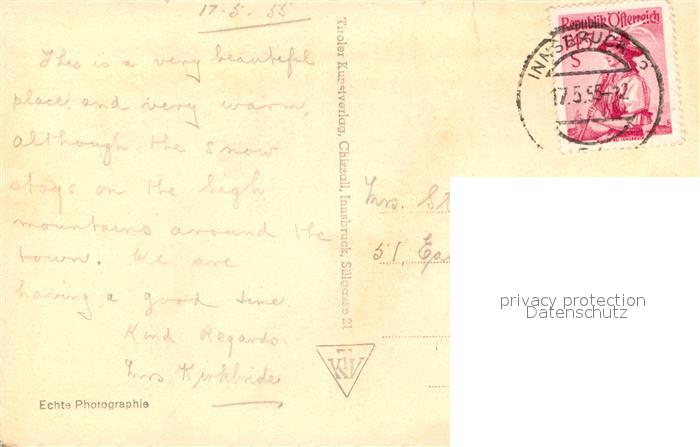 17-5-55
This is a very beautiful
place and very warm,
although the snow
stays on the high
mountains around the
town. We are
having a good time.
Kind Regards
Mrs Kirkbride
Echte Photographie
Tiroler Kunstverlag, Chizzali, Innsbruck, Sillgasse 21
Republik Österreich
S
INNSBRUCK
17.5.55-12
Mrs. St
51, Ep
privacy protection
Datenschutz